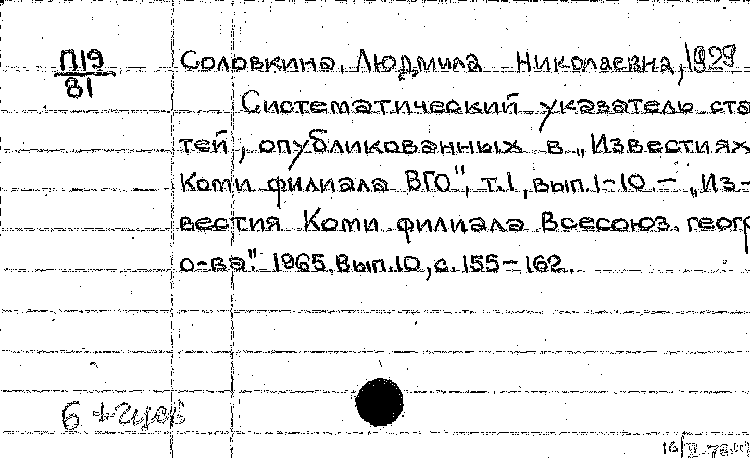 П19
81
Соловкина, Людмила Николаевна, 1929
Систематический указатель ста
тей, опубликованных в „Известиях
Коми филиала ВГО", т.1, вып.1-10. — „Из-
вестия Коми филиала Всесоюз. геогр
о-ва". 1965. Вып.10, с. 155-162.
6